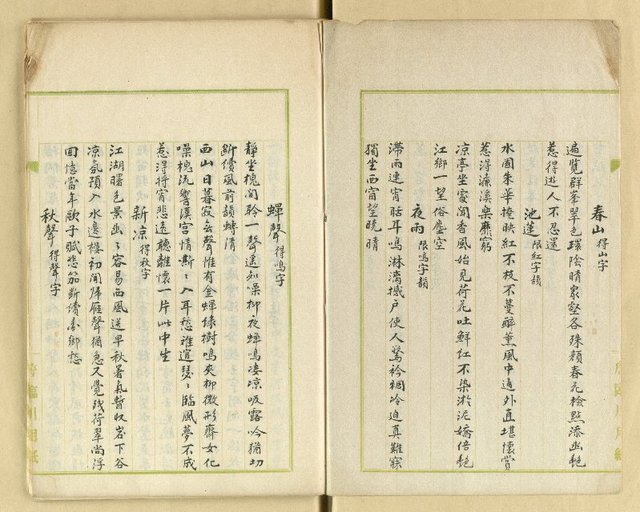 春山 得山字
遍覽群峯翠色環陰晴衆壑各殊顏春光檢點添幽艷
惹得遊人不忍還
池蓮 限紅字韻
水國朱華掩映紅不枝不蔓醉薰風中通外直堪懷賞
惹得濂溪樂靡窮
涼亭坐愛聞香風始見荷花吐鮮紅不染淤泥嬌倍艷
江鄉一望俗塵空
夜雨 限鳴字韻
滯雨連宵聒耳鳴淋漓撼戶使人驚衿裯冷迫真難寐
獨坐西窗望曉晴
蟬聲 得鳴字
靜坐槐間聆一聲遙知噪柳夜蟬鳴淒涼吸露吟猶切
斷續風前韻轉清
西山日暮寂無聲惟有金蟬綠樹鳴夾柳微形齊女化
噪槐流響漢宮情漸漸入耳愁誰遣瑟瑟臨風夢不成
惹得將宵悲遠聽離懷一片此中生
新涼 得秋字
江湖曙色景幽幽容易西風送早秋暑氣暫收岩下谷
涼氛預入水邊樓初聞陣雁聲猶急又覺殘荷翠尚浮
回憶當年歐子賦悲加斷續動鄉愁
秋聲 得聲字